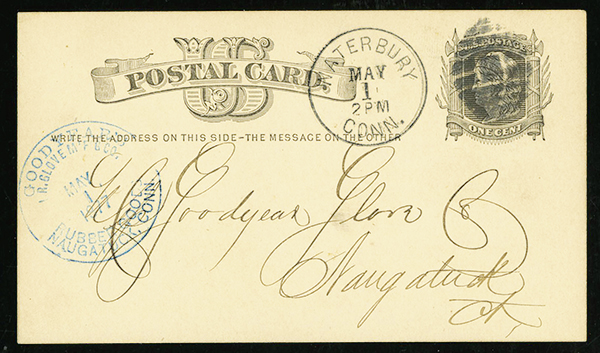 US
POSTAL CARD
U.S. POSTAGE
ONE CENT
WATERBURY
MAY
1
2PM
CONN.
WRITE THE ADDRESS ON THIS SIDE-THE MESSAGE ON THE OTHER
GOODYEAR'S
I.R. GLOVE M'F'G CO.
MAY
1
RUBBER GOODS
NAUGATUCK, CONN.
Goodyear Glove Co
Naugatuck
Ct.